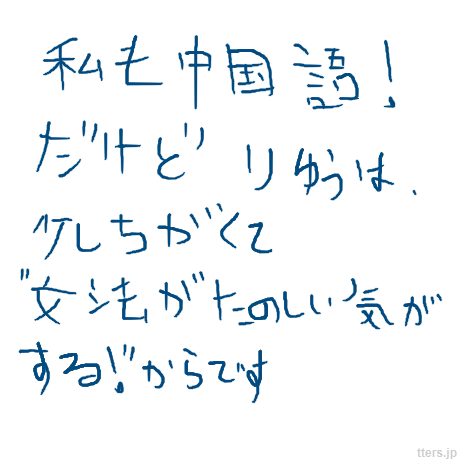 私も中国語!
だけど りゆうは、
少しちがくて
"文法がたのしい気が
する!"からです
tters.jp